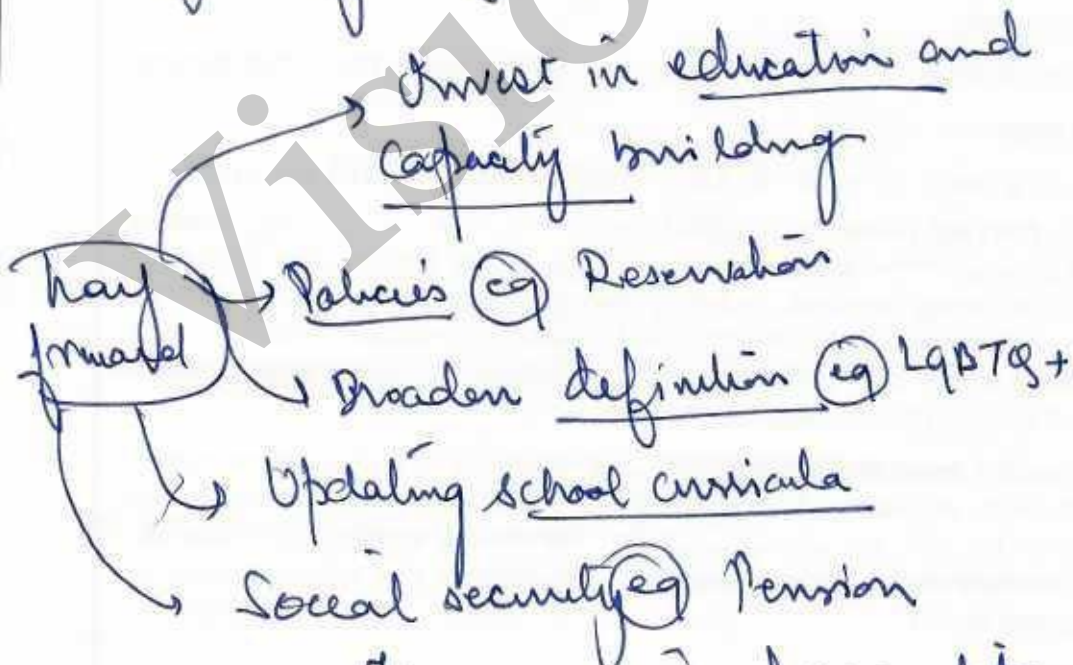 Invest in education and
capacity building
Way
forward
Policies eg Reservation
Broaden definition eg LGBTQ+
Updating school curricula
Social security eg Pension
Visio